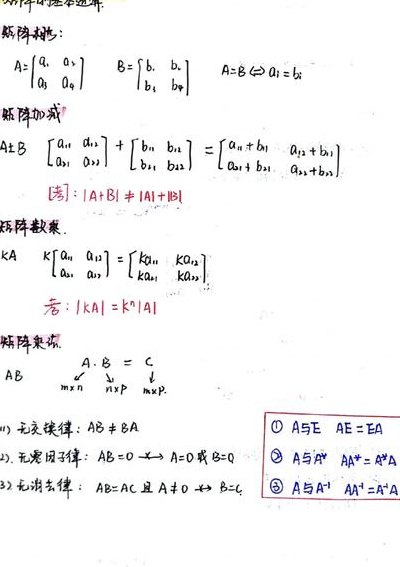 矩阵的基本运算
矩阵相等:
A=[a₁ a₂ a₃ a₄] B=[b₁ b₂ b₃ b₄] A=B⇔aᵢ=bᵢ
矩阵加减
A±B [a₁₁ a₁₂ a₂₁ a₂₂]+[b₁₁ b₁₂ b₂₁ b₂₂]=[a₁₁+b₁₁ a₁₂+b₁₂ a₂₁+b₂₁ a₂₂+b₂₂]
[考]: |A+B|≠|A|+|B|
矩阵数乘.
KA K[a₁₁ a₁₂ a₂₁ a₂₂]=[Ka₁₁ Ka₁₂ Ka₂₁ Ka₂₂]
考: |KA|=Kⁿ|A|
矩阵乘法.
A.B = C
AB m×n n×p m×p.
(1) 无交换律: AB≠BA
2). 无零因子律: AB=0 ↛ A=0 或 B=0
3) 无消去律: AB=AC 且 A≠0 ↛ B=C
① A与E AE=EA
② A与A* AA*=A*A
③ A与A⁻¹ AA⁻¹=A⁻¹A